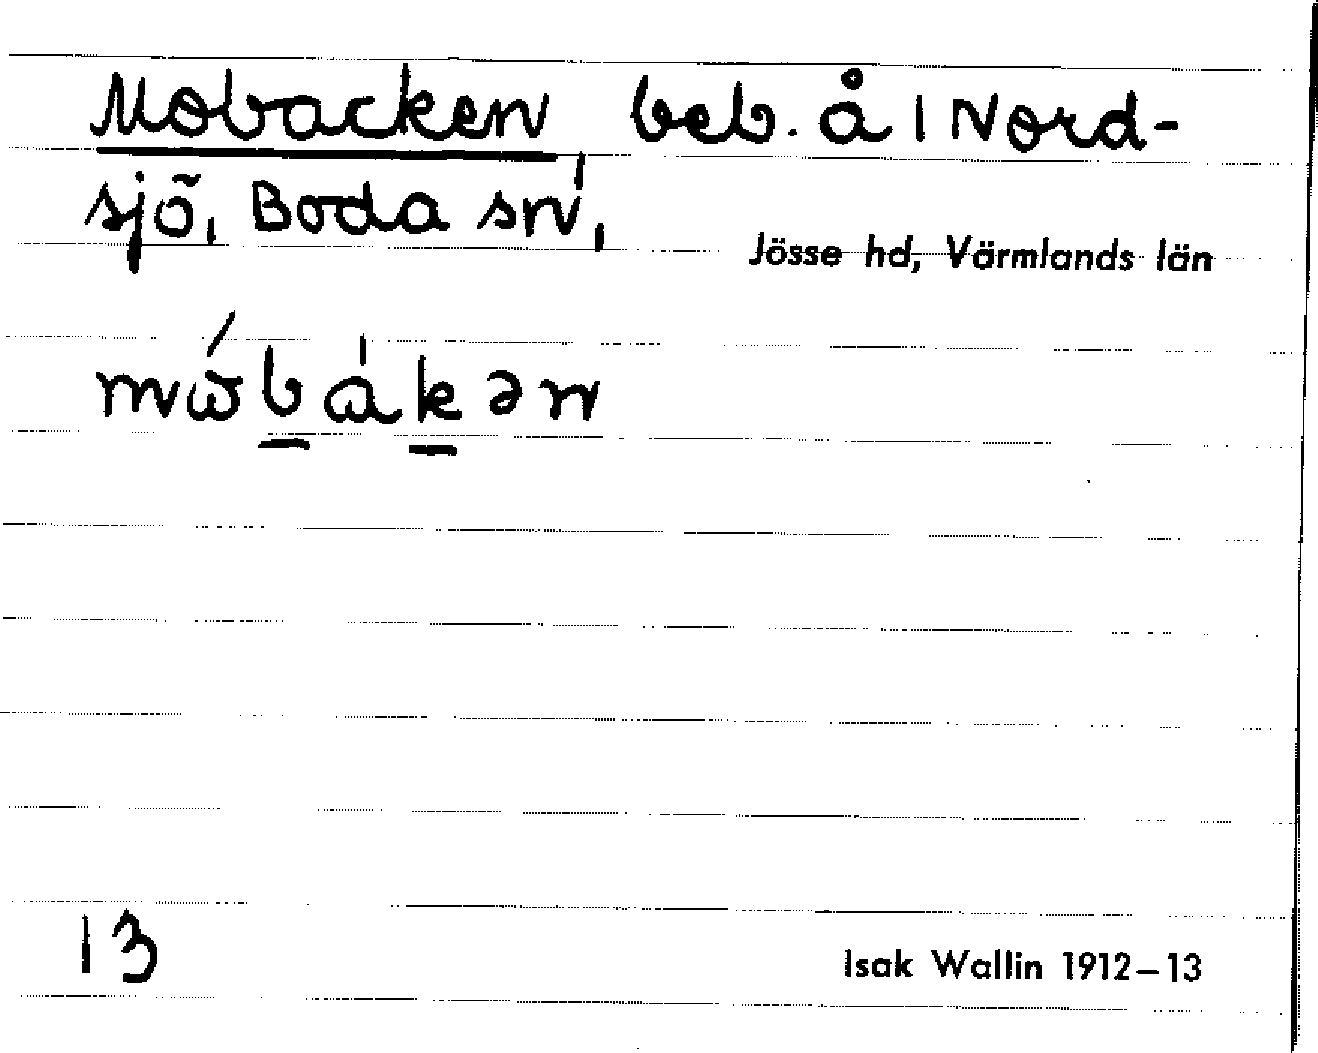 Mobacken, beb. å 1 Nord-
sjö, Boda sn,
Jösse hd, Värmlands län
mω̇́bàkən
13
Isak Wallin 1912–13